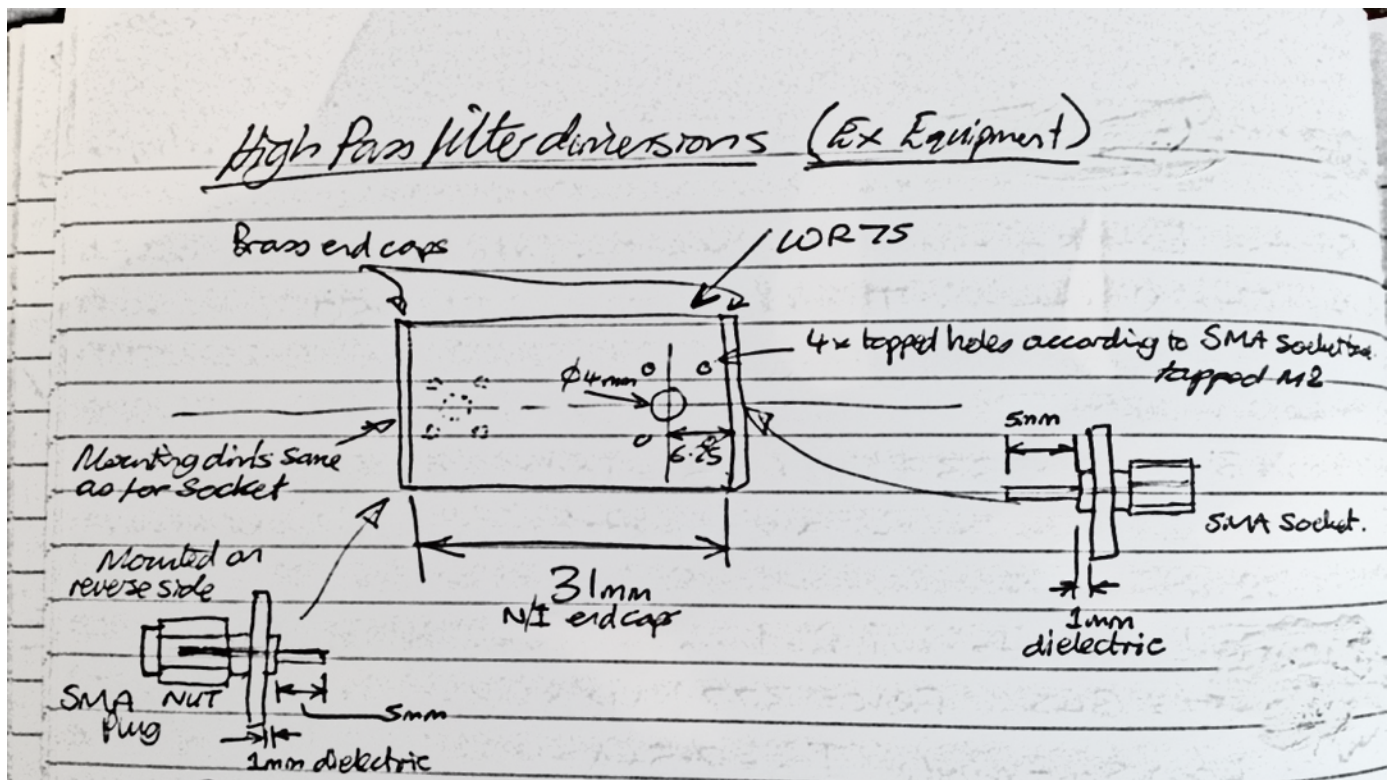 High Pass filter dimensions (Ex Equipment)
Brass end caps
WR75
4x tapped holes according to SMA socket
tapped M2
Ø4mm
6.25
5mm
Mounting dims same
as for socket
SMA Socket.
Mounted on
reverse side
31mm
N/I end caps
1mm
dielectric
SMA NUT
Plug
5mm
1mm dielectric